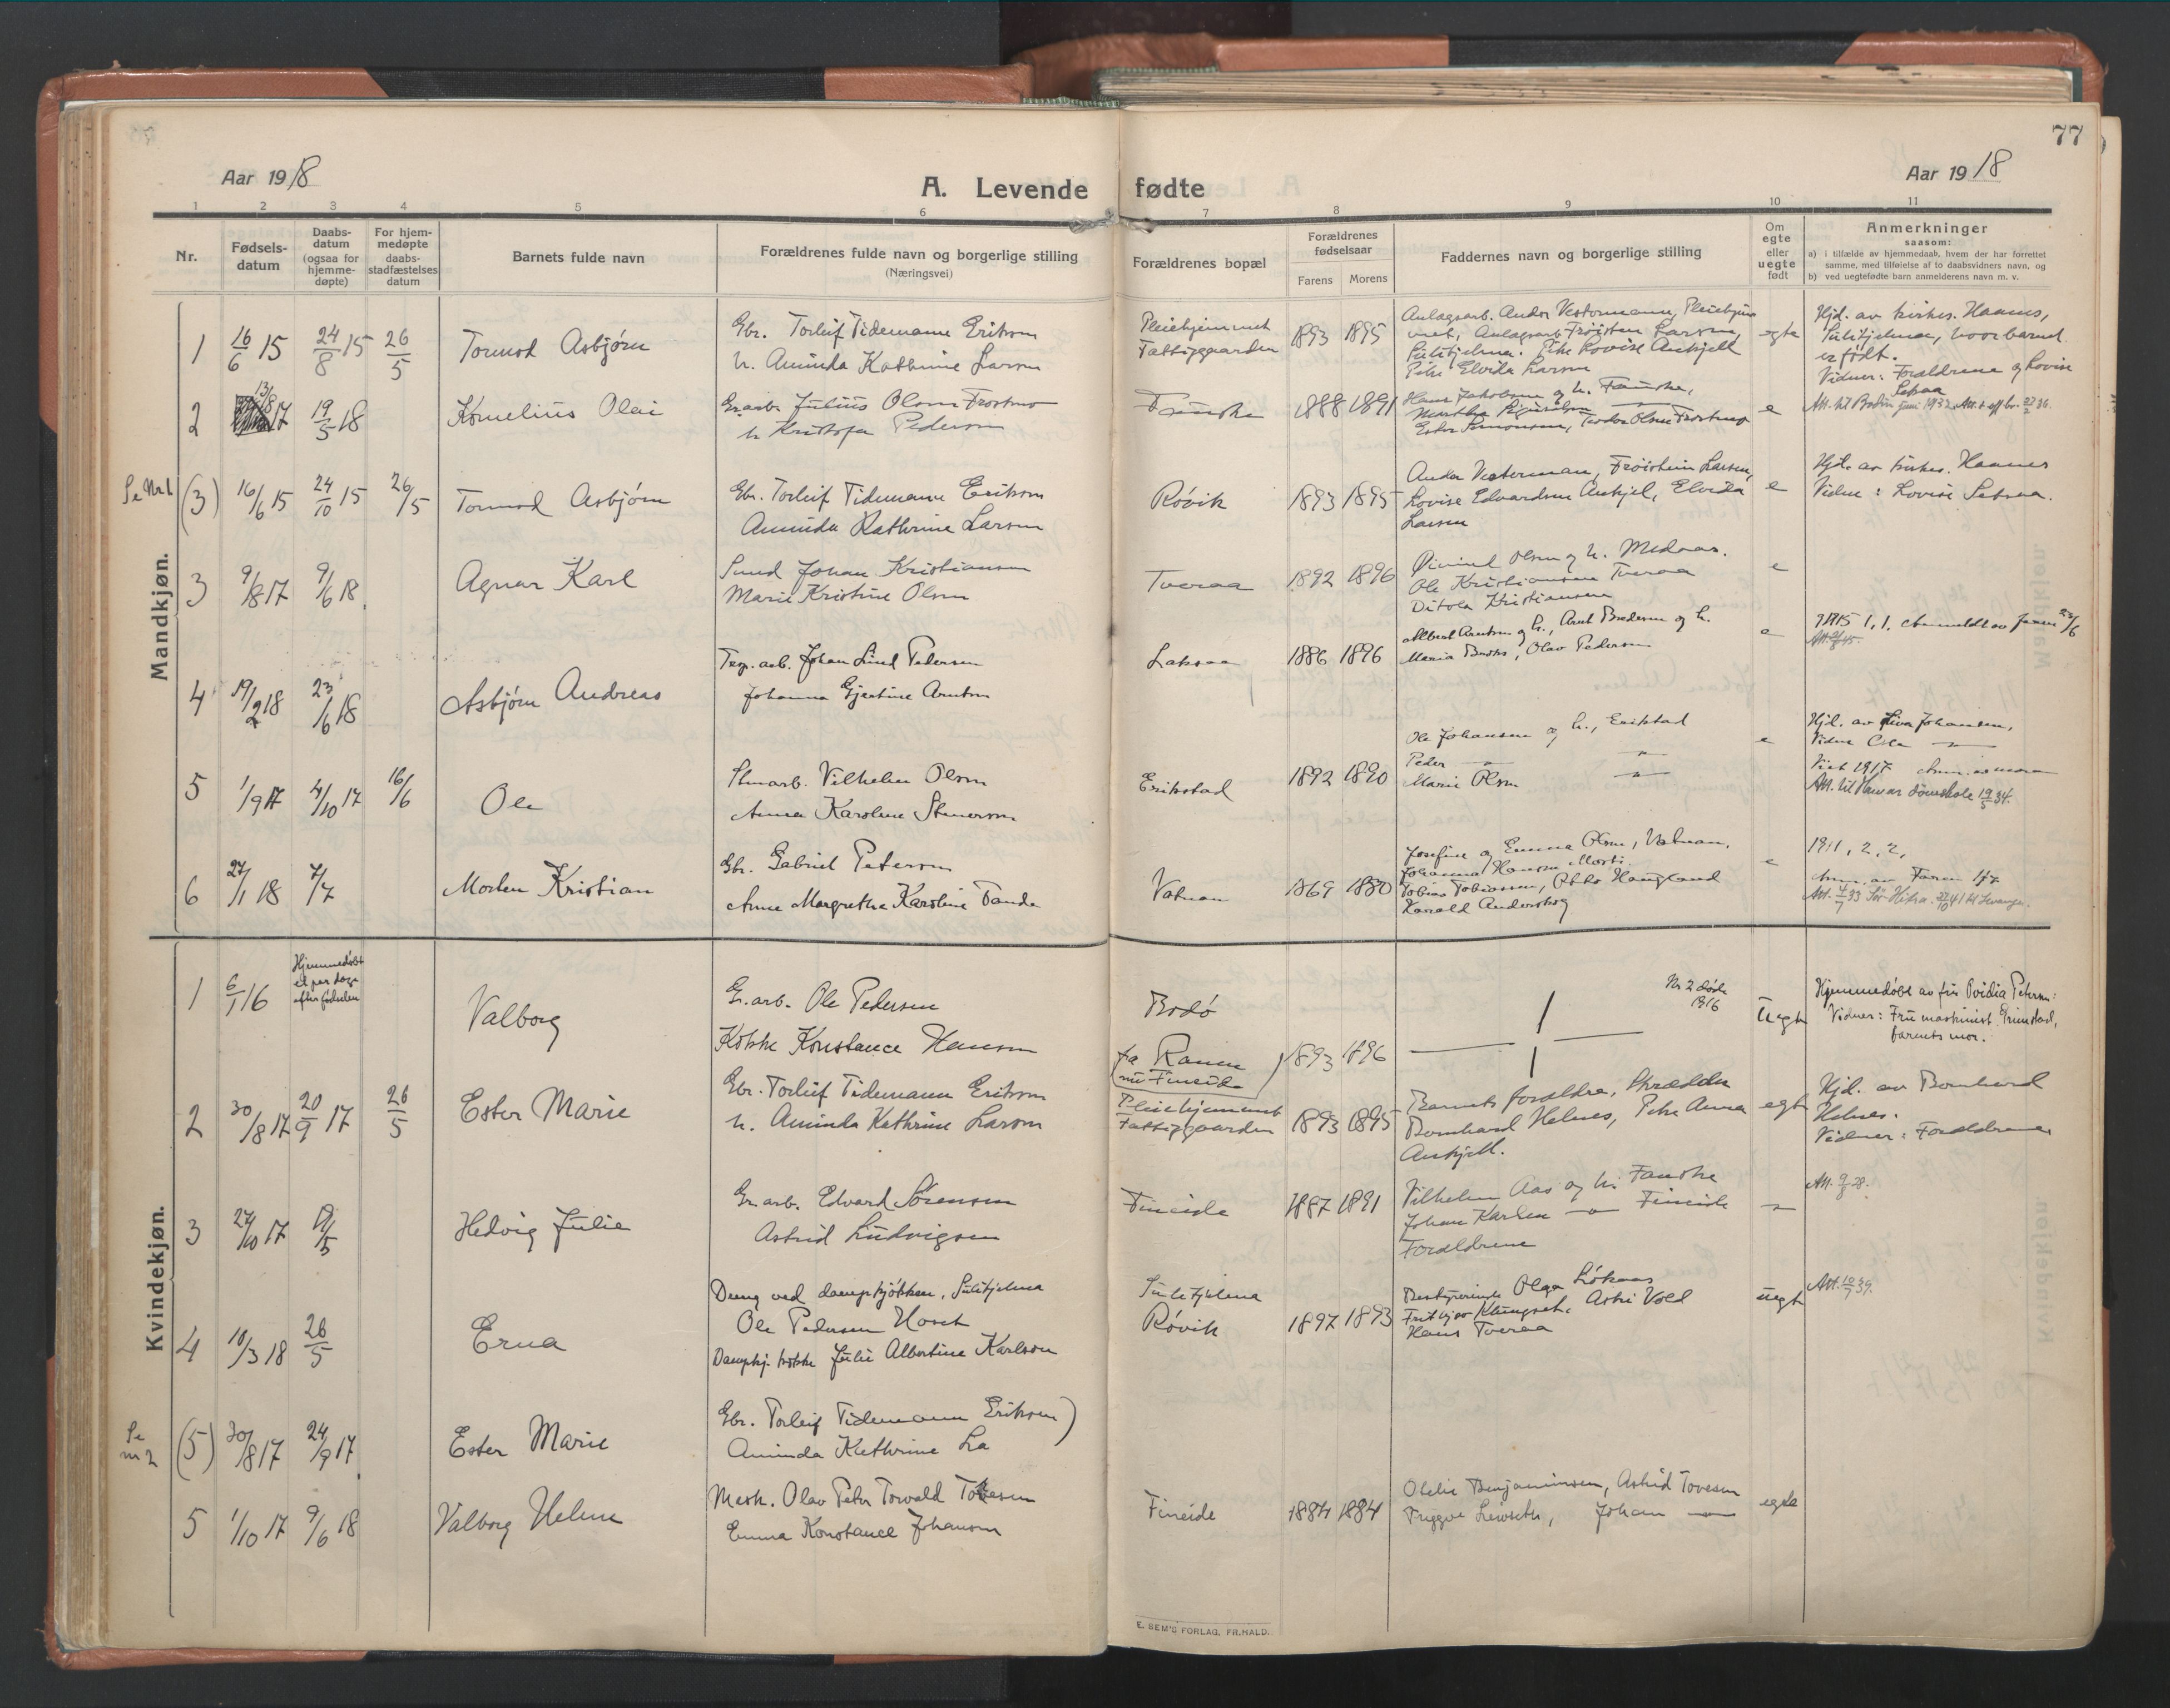 77
Aar 1918
A. Levende fødte
Aar 1918
1 2 3 4 5 6 7 8 9 10 11
Nr.
Fødsels-
datum
Daabs-
datum
(ogsaa for
hjemme-
døpte)
For hjem-
medøpte
daabs-
stadfæstelses
datum
Barnets fulde navn
Forældrenes fulde navn og borgerlige stilling
(Næringsvei)
Forældrenes bopæl
Forældrenes
fødselsaar
Farens Morens
Faddernes navn og borgerlige stilling
Om
egte
eller
uegte
født
Anmerkninger
saasom:
a) i tilfælde av hjemmedaab, hvem der har forrettet
samme, med tilføielse af to daabsvidners navn, og
b) ved uegtefødte barn anmelderens navn m. v.
Mandkjøn.
1 16/6 15 24/8 15 26/5 Tormod Asbjørn
Gbr. Torleif Tidemann Eriksen
h. Aminda Kathrine Larsen
Pleiehjemmet
Fattiggaarden
1893 1895
Anlagsarb. Andor Vestermann, Pleiehjem
met, Anlagsarb. Frøisten Larsen,
Sulitjelma. Pike Lovise Ankjell
Pike Elvida Larsen
egte
Hjd. av kirkes. Haanes,
Sulitjelma, hvor barnet
er født.
Vidner: Forældrene og Lovise
Setsaa
2 13/8 17 19/5 18 Kornelius Olai
Gr.arb. Julius Olsen Frostmo
h Kristofa Pedersen
Fauske
1888 1891
Hans Jakobsen og h. Fauske,
Ester Simonsen, Teodor Olsen Frostmo
e
Att. til Bodin juni 1932
Se Nr 1
(3) 16/6 15 24/10 15 26/5 Tormod Asbjørn
Gbr. Torleif Tidemann Eriksen
Aminda Kathrine Larsen
Røvik
1893 1895
Andor Vesterman, Frøistein Larsen,
Lovise Edvardsen Ankjel, Elvida
Larsen
e
Hjd. av kirkes. Haanes
Vidne: Lovise Setsaa.
3 9/8 17 9/6 18 Agnar Karl
Sund Johan Kristiansen
Marie Kristine Olsen
Tveraa
1892 1896
Øivind Olsen og h. Medaas.
Ole Kristiansen Tveraa
Ditola Kristiansen
e
4 19/2 18 23/6 18 Asbjørn Andreas
Trop. arb. Johan Lind Pedersen
Johanna Gjertine Arntsen
Laksaa
1886 1896
Albert Arntsen og h., Arnt Bredesen og h.
Maria Buviks, Olav Pedersen
e
1915 1, 1. Anmeldt av faren 23/6
5 1/9 17 4/10 17 16/6 Ole
Stenarb. Vilhelm Olsen
Anna Karoline Stenersen
Erikstad
1892 1890
Ole Johansen og h., Erikstad
Peder — "
Marie Olsen — "
e
Hjd. av Sivar Johansen,
Vidne Ole — " —
Viet 1917 Anm. av moren
Att. til Hamar døveskole 19/5 34.
6 27/1 18 7/7 Morten Kristian
Gbr. Gabriel Petersen
Anne Margrethe Karoline Tande
Vatnan
1869 1880
Josefine og Emma Olsen, Vatnan.
Johanna Hansen Mosti.
Tobias Tobiassen, Otto Haugland
Harald Andershog
e
1911, 2, 2,
Anm. av Faren 1/7
Att. 4/7 33 Sør Hitra. 22/10 41 til Levanger.
Kvindekjøn.
1 6/1 16
Hjemmedøbt
et par dage
efter fødselen
Valborg
Gr.arb. Ole Pedersen
Kokke Konstance Hansen
Bodø
fra Ranen
(nu Fineide)
1893 1896
Nr 2 døde
1916
Uegte
Hjemmedøbt av fru Ovidia Petersen:
Vidner: Fru maskinist Grimstad,
barnets mor.
2 30/8 17 20/9 17 26/5 Ester Marie
Gbr. Torleif Tidemann Eriksen
h. Aminda Kathrine Larsen
Pleiehjemmet
Fattiggaarden
1893 1895
Barnets forældre, Skrædder
Bernhard Helnes, Pike Anna
Ankjell.
egte
Hjd. av Bernhard
Helnes.
Vidner: Forældrene
3 27/10 17 19/5 Hedvig Julie
Gr.arb. Edvard Sørensen
Astrid Ludvigsen
Fineide
1887 1891
Vilhelm Aas og h. Fauske
Johan Karlsen — " — Fineide
Forældrene
"
Att. 9/8 28.
4 10/3 18 26/5 Erna
Dreng ved dampkjøkken, Sulitjelma
Ole Pedersen Horset
Dampkj. kokke Julie Albertine Karlsen
Sulitjelma
Røvik
1897 1893
Bestyrerinde Olga Løkaas
Frithjov Klungset. Astri Vold
Hans Tveraa
uegte
Att. 10/7 39.
Se
nr 2
(5) 30/8 17 24/9 17 Ester Marie
Gbr. Torleif Tidemann Eriksen)
Aminda Kathrine La
5 1/10 17 9/6 18 Valborg Helene
Mask. Olav Peter Torvald Tovesen
Emma Konstance Johansen
Fineide
1884 1884
Otelie Benjaminsen, Astrid Tovesen
Tryggve Leivseth, Johan — " —
egte
E. SEM'S FORLAG. FR.HALD.